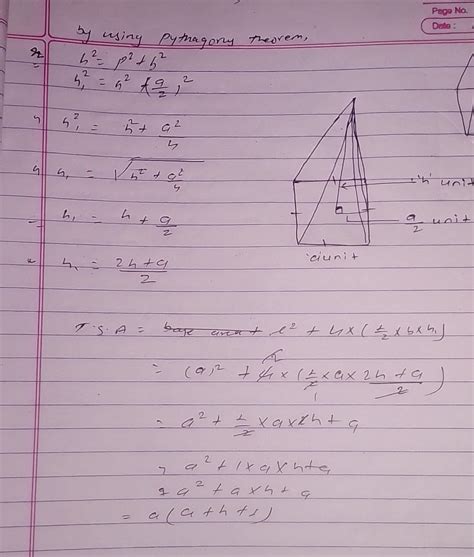 Page No.
Date :
by using pythagorus theorem,
h² = p² + b²
h₁² = h² + (a/2)²
h₁² = h² + a²/4
h₁ = √h² + a²/4
= h₁ = h + a/2
h₁ = 2h + a/2
'h' unit
a/2 unit
'a' unit
T.S.A = base area + l² + 4 × (1/2 × b × h₁)
= (a)² + 4 × (1/2 × a × 2h + a/2)
= a² + 1/2 × a × 2h + a
= a² + 1 × a × h + a
= a² + a × h + a
= a (a + h + 1)